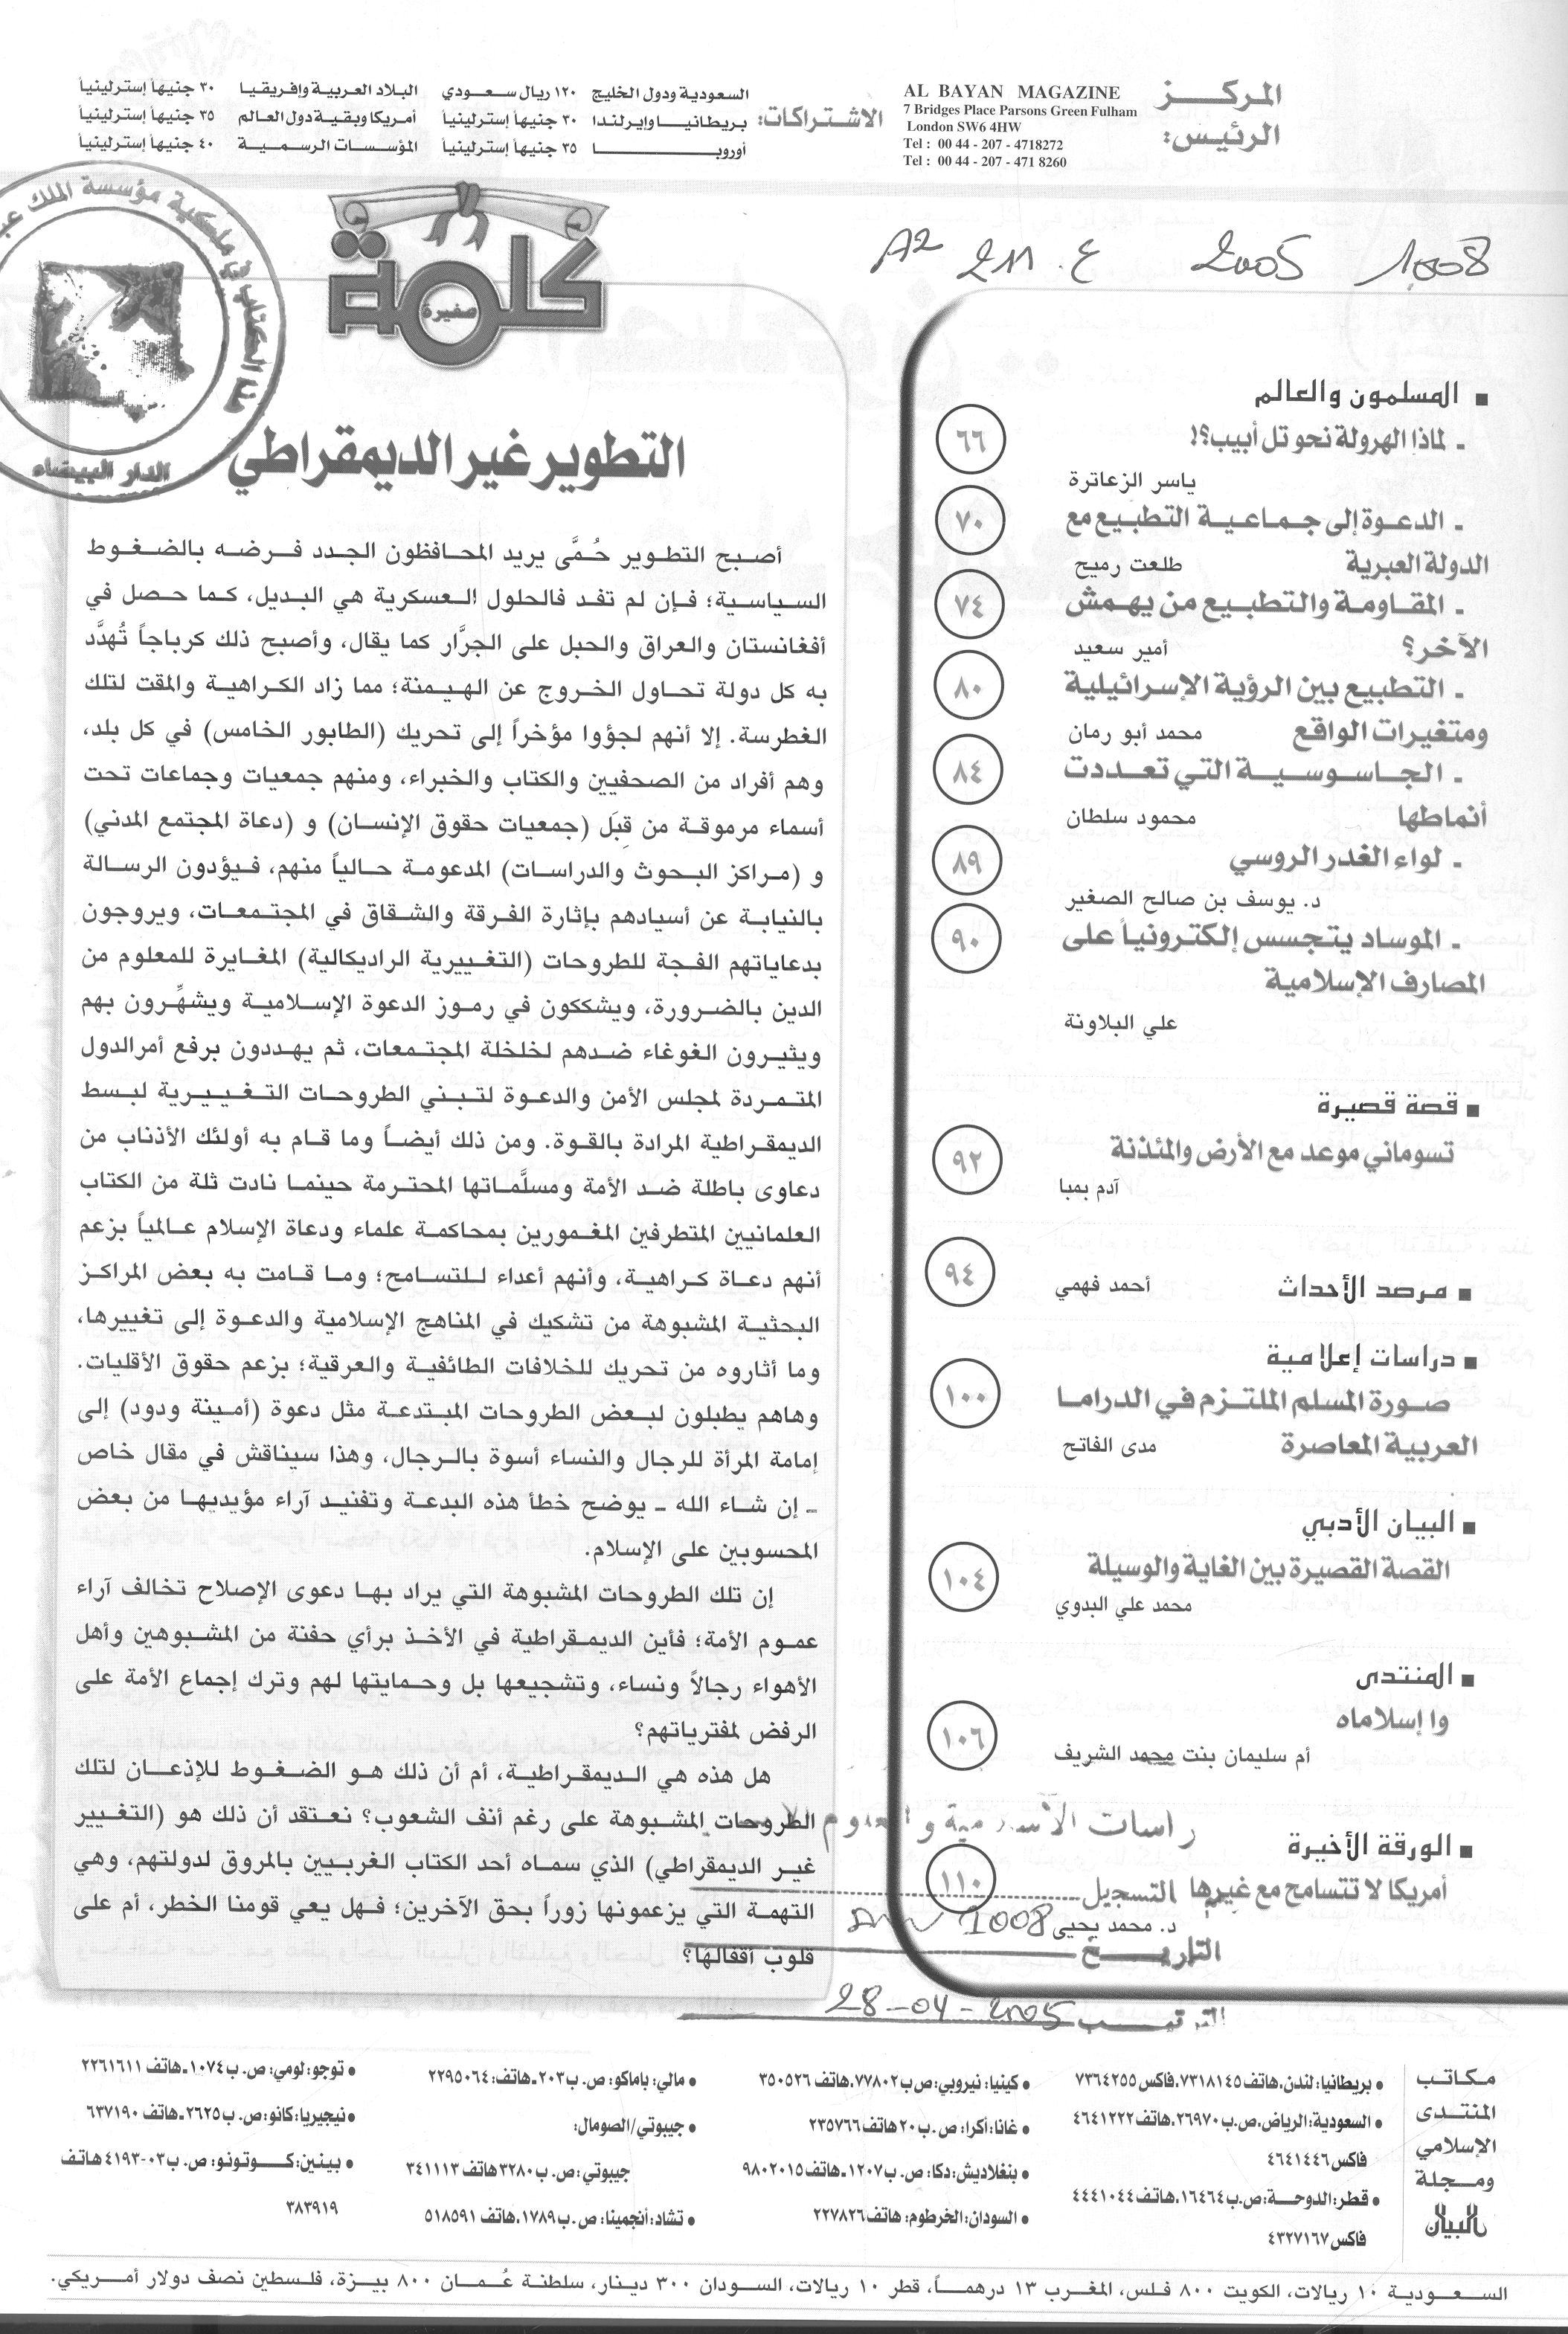 المركز
الرئيس:
AL BAYAN MAGAZINE
7 Bridges Place Parsons Green Fulham
London SW6 4HW
Tel : 00 44 - 207 - 4718272
Tel : 00 44 - 207 - 471 8260
الاشتراكات:
السعودية ودول الخليج ١٢٠ ريال سعودي
بريطانيا وإيرلندا ٣٠ جنيهاً إسترلينياً
أوروبا ٣٥ جنيهاً إسترلينياً
البلاد العربية وإفريقيا ٣٠ جنيهاً إسترلينياً
أمريكا وبقية دول العالم ٣٥ جنيهاً إسترلينياً
المؤسسات الرسمية ٤٠ جنيهاً إسترلينياً
A2 211 . ع 2005 1008
■ المسلمون والعالم
ـ لماذا الهرولة نحو تل أبيب؟! ٦٦
ياسر الزعاترة
ـ الدعوة إلى جماعية التطبيع مع ٧٠
الدولة العبرية طلعت رميح
ـ المقاومة والتطبيع من يهمش ٧٤
الآخر؟ أمير سعيد
ـ التطبيع بين الرؤية الإسرائيلية ٨٠
ومتغيرات الواقع محمد أبو رمان
ـ الجاسوسية التي تعددت ٨٤
أنماطها محمود سلطان
ـ لواء الغدر الروسي ٨٩
د. يوسف بن صالح الصغير
ـ الموساد يتجسس إلكترونياً على ٩٠
المصارف الإسلامية
علي البلاونة
■ قصة قصيرة
تسوماني موعد مع الأرض والمئذنة ٩٢
آدم بمبا
■ مرصد الأحداث أحمد فهمي ٩٤
■ دراسات إعلامية
صورة المسلم الملتزم في الدراما ١٠٠
العربية المعاصرة مدى الفاتح
■ البيان الأدبي
القصة القصيرة بين الغاية والوسيلة ١٠٤
محمد علي البدوي
■ المنتدى
وا إسلاماه ١٠٦
أم سليمان بنت محمد الشريف
■ الورقة الأخيرة
أمريكا لا تتسامح مع غيرها ١١٠
د. محمد يحيى
التسجيل
1008
التاريخ
28-04-2005
كلمة
صغيرة
الدار البيضاء
التطوير غير الديمقراطي
أصبح التطوير حُمَّى يريد المحافظون الجدد فرضه بالضغوط
السياسية؛ فإن لم تفد فالحلول العسكرية هي البديل، كما حصل في
أفغانستان والعراق والحبل على الجرَّار كما يقال، وأصبح ذلك كرباجاً تُهدَّد
به كل دولة تحاول الخروج عن الهيمنة؛ مما زاد الكراهية والمقت لتلك
الغطرسة. إلا أنهم لجؤوا مؤخراً إلى تحريك (الطابور الخامس) في كل بلد،
وهم أفراد من الصحفيين والكتاب والخبراء، ومنهم جمعيات وجماعات تحت
أسماء مرموقة من قِبَل (جمعيات حقوق الإنسان) و (دعاة المجتمع المدني)
و (مراكز البحوث والدراسات) المدعومة حالياً منهم، فيؤدون الرسالة
بالنيابة عن أسيادهم بإثارة الفرقة والشقاق في المجتمعات، ويروجون
بدعاياتهم الفجة للطروحات (التغييرية الراديكالية) المغايرة للمعلوم من
الدين بالضرورة، ويشككون في رموز الدعوة الإسلامية ويشهِّرون بهم
ويثيرون الغوغاء ضدهم لخلخلة المجتمعات، ثم يهددون برفع أمر الدول
المتمردة لمجلس الأمن والدعوة لتبني الطروحات التغييرية لبسط
الديمقراطية المرادة بالقوة. ومن ذلك أيضاً وما قام به أولئك الأذناب من
دعاوى باطلة ضد الأمة ومسلَّماتها المحترمة حينما نادت ثلة من الكتاب
العلمانيين المتطرفين المغمورين بمحاكمة علماء ودعاة الإسلام عالمياً بزعم
أنهم دعاة كراهية، وأنهم أعداء للتسامح؛ وما قامت به بعض المراكز
البحثية المشبوهة من تشكيك في المناهج الإسلامية والدعوة إلى تغييرها،
وما أثاروه من تحريك للخلافات الطائفية والعرقية؛ بزعم حقوق الأقليات.
وهاهم يطبلون لبعض الطروحات المبتدعة مثل دعوة (أمينة ودود) إلى
إمامة المرأة للرجال والنساء أسوة بالرجال، وهذا سيناقش في مقال خاص
ـ إن شاء الله ـ يوضح خطأ هذه البدعة وتفنيد آراء مؤيديها من بعض
المحسوبين على الإسلام.
إن تلك الطروحات المشبوهة التي يراد بها دعوى الإصلاح تخالف آراء
عموم الأمة؛ فأين الديمقراطية في الأخذ برأي حفنة من المشبوهين وأهل
الأهواء رجالاً ونساء، وتشجيعها بل وحمايتها لهم وترك إجماع الأمة على
الرفض لمفترياتهم؟
هل هذه هي الديمقراطية، أم أن ذلك هو الضغوط للإذعان لتلك
الطروحات المشبوهة على رغم أنف الشعوب؟ نعتقد أن ذلك هو (التغيير
غير الديمقراطي) الذي سماه أحد الكتاب الغربيين بالمروق لدولتهم، وهي
التهمة التي يزعمونها زوراً بحق الآخرين؛ فهل يعي قومنا الخطر، أم على
قلوب أقفالها؟
مكاتب
المنتدى
الإسلامي
ومجلة
البيان
• بريطانيا: لندن، هاتف ٧٣١٨١٤٥، فاكس ٧٣٦٤٢٥٥
• السعودية: الرياض، ص. ب ٢٦٩٧٠، هاتف ٤٦٤١٢٢٢
فاكس ٤٦٤١٤٤٦
• قطر: الدوحة: ص. ب ١٦٤٦٤، هاتف ٤٤٤١٠٤٤
فاكس ٤٣٢٧١٦٧
• كينيا: نيروبي: ص ب ٧٧٨٠٢، هاتف ٣٥٠٥٢٦
• غانا: أكرا: ص. ب ٢٠ هاتف ٢٣٥٧٦٦
• بنغلاديش: دكا: ص. ب ١٢٠٧ـ هاتف ٩٨٠٢٠١٥
• السودان: الخرطوم: هاتف ٢٢٧٨٢٦
• مالي: باماكو: ص. ب ٢٠٣ـ هاتف: ٢٢٩٥٠٦٤
• جيبوتي/الصومال:
جيبوتي: ص. ب ٣٢٨٠ هاتف ٣٤١١١٣
• تشاد: أنجمينا: ص. ب ١٧٨٩، هاتف ٥١٨٥٩١
• توجو: لومي: ص. ب ١٠٧٤ـ هاتف ٢٢٦١٦١١
• نيجيريا: كانو: ص. ب ٢٦٢٥ـ هاتف ٦٣٧١٩٠
• بينين: كوتونو: ص. ب ٠٣-٤١٩٣ هاتف
٣٨٣٩١٩
السعودية ١٠ ريالات، الكويت ٨٠٠ فلس، المغرب ١٣ درهماً، قطر ١٠ ريالات، السودان ٣٠٠ دينار، سلطنة عُمان ٨٠٠ بيزة، فلسطين نصف دولار أمريكي.